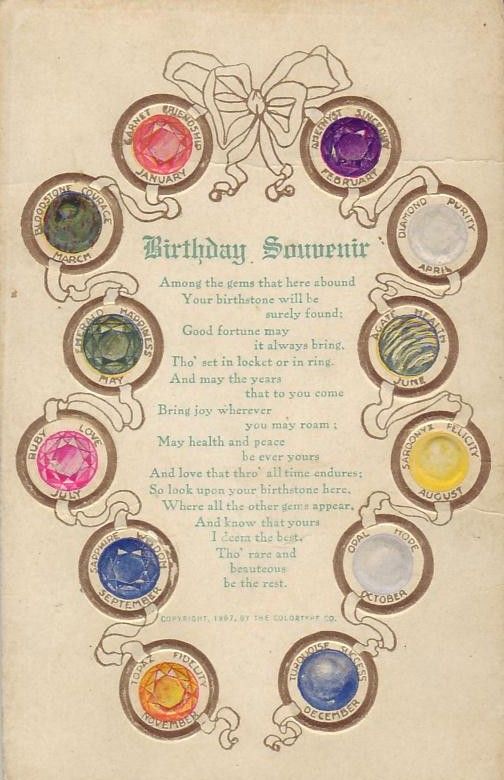 GARNET FRIENDSHIP
JANUARY
AMETHYST SINCERITY
FEBRUARY
BLOODSTONE COURAGE
MARCH
DIAMOND PURITY
APRIL
Birthday Souvenir
Among the gems that here abound
Your birthstone will be
surely found;
Good fortune may
it always bring,
Tho' set in locket or in ring.
And may the years
that to you come
Bring joy wherever
you may roam;
May health and peace
be ever yours
And love that thro' all time endures;
So look upon your birthstone here,
Where all the other gems appear,
And know that yours
I deem the best,
Tho' rare and
beauteous
be the rest.
EMERALD HAPPINESS
MAY
AGATE HEALTH
JUNE
RUBY LOVE
JULY
SARDONYX FELICITY
AUGUST
SAPPHIRE WISDOM
SEPTEMBER
OPAL HOPE
OCTOBER
COPYRIGHT, 1907, BY THE COLORTYPE CO.
TOPAZ FIDELITY
NOVEMBER
TURQUOISE SUCCESS
DECEMBER